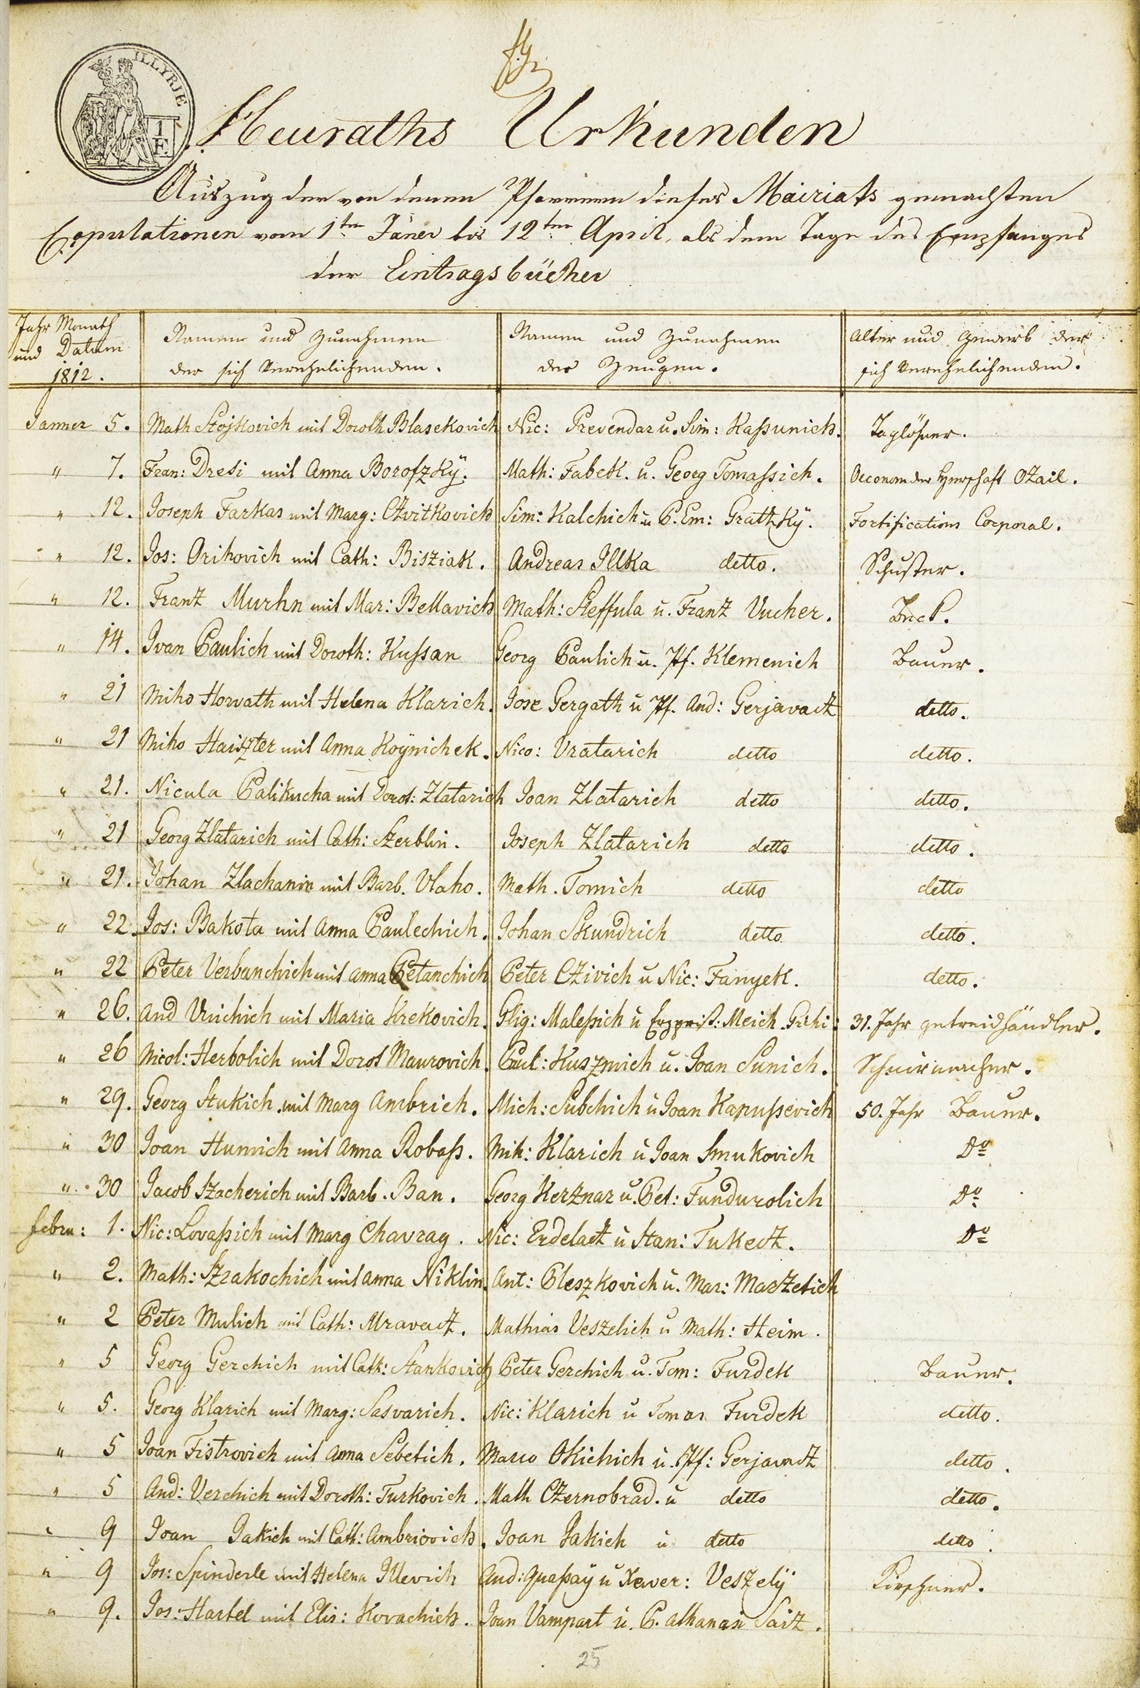 ILLYRIE
Heuraths Urkunden
Auszug der von denen Pfarrern dieses Mairiats gemachten
Copulationen vom 1ten Jäner bis 12ten April, als dem Tage des Empfanges
der Eintragsbücher
Jahr Monath und Datum 1812. Namen und Zunahmen der sich Verehelichenden. Namen und Zunahmen der Zeugen. Alter und Gewerb der sich Verehelichenden.
Janner 5. Math Stojkovich mit Doroth Blasekovich Nic: Prevendar u. Sim: Kaßunich. Taglöhner.
" 7. Fran: Dresi mit Anna Borofzkÿ. Math: Fabek. u. Georg Tomassich. Oeconom der Herrschaft Ozail.
" 12. Joseph Farkas mit Marg: Czvitkovich Sim: Kalchich u P: Em: Gratzkÿ. Fortifications Corporal.
" 12. Jos: Orihovich mit Cath: Bisziak. Andreas Illka detto. Schuster.
" 12. Franz Murhn mit Mar: Bellavich Math: Steffula u. Franz Vucher.
" 14. Ivan Paulich mit Doroth: Kussan Georg Paulich u. Pf. Klemenich Bauer.
" 21 Miho Horvath mit Helena Klarich. Jose Gergath u Pf. And: Gerjavacz detto.
" 21 Miho Haiszter mit Anna Koÿnichek. Nico: Vratarich detto detto.
" 21. Nicula Palikucha mit Dorot: Zlatarich Joan Zlatarich detto detto.
" 21 Georg Zlatarich mit Cath: Szerblin. Joseph Zlatarich detto detto.
" 21. Johan Zlachanin mit Barb. Vlaho. Math. Tomich detto detto
" 22 Jos: Bakota mit Anna Paulechich. Johan Skundrich detto detto.
" 22 Peter Verbanchich mit Anna Petanchich Peter Czivich u Nic: Fanyek. detto.
" 26. And Vuichich mit Maria Krekovich. Glig: Maleßich u Meich 31. Jahr getreidhändler.
" 26 Nicol: Herbolich mit Dorot Maurovich. Paul: Kuszmich u. Joan Sunich.
" 29. Georg Stukich mit Marg Ambrich. Mich: Subchich u Joan Kapussevich 50. Jahr Bauer.
" 30 Joan Hunvich mit Anna Robaß. Mik: Klarich u Joan Smukovich Do
" 30 Jacob Szacherich mit Barb. Ban. Georg Kerznar u. Pet: Fundurolich Do
Febru: 1. Nic: Lovaßich mit Marg Chavrag. Nic: Erdelacz u Stan: Tukecz. Do
" 2. Math: Szrakochich mit Anna Niklin Ant: Pleszkovich u. Mar: Marzetich
" 2 Peter Mulich mit Cath: Mravacz. Mathias Veszelich u Math: Heim.
" 5 Georg Gerchich mit Cath: Stankovich Peter Gerchich u. Tom: Furdek Bauer.
" 5. Georg Klarich mit Marg: Sasvarich. Nic: Klarich u Tomas Furdek detto.
" 5 Joan Fistrovich mit Anna Sebetich. Marco Okichich u. Pf: Gerjavacz detto.
" 5 And: Verchich mit Doroth: Turkovich. Math Czernobrad. u detto detto.
" 9 Joan Jakich mit Cath: Ambriovich. Joan Jakich u detto detto.
" 9 Jos: Spinderle mit Helena Illevich And: Quaßay u Xaver: Veszelÿ Kirschner.
" 9. Jos: Hartel mit Elis: Kovachich. Joan Vampart u. P. Athanasi Saiz.
25